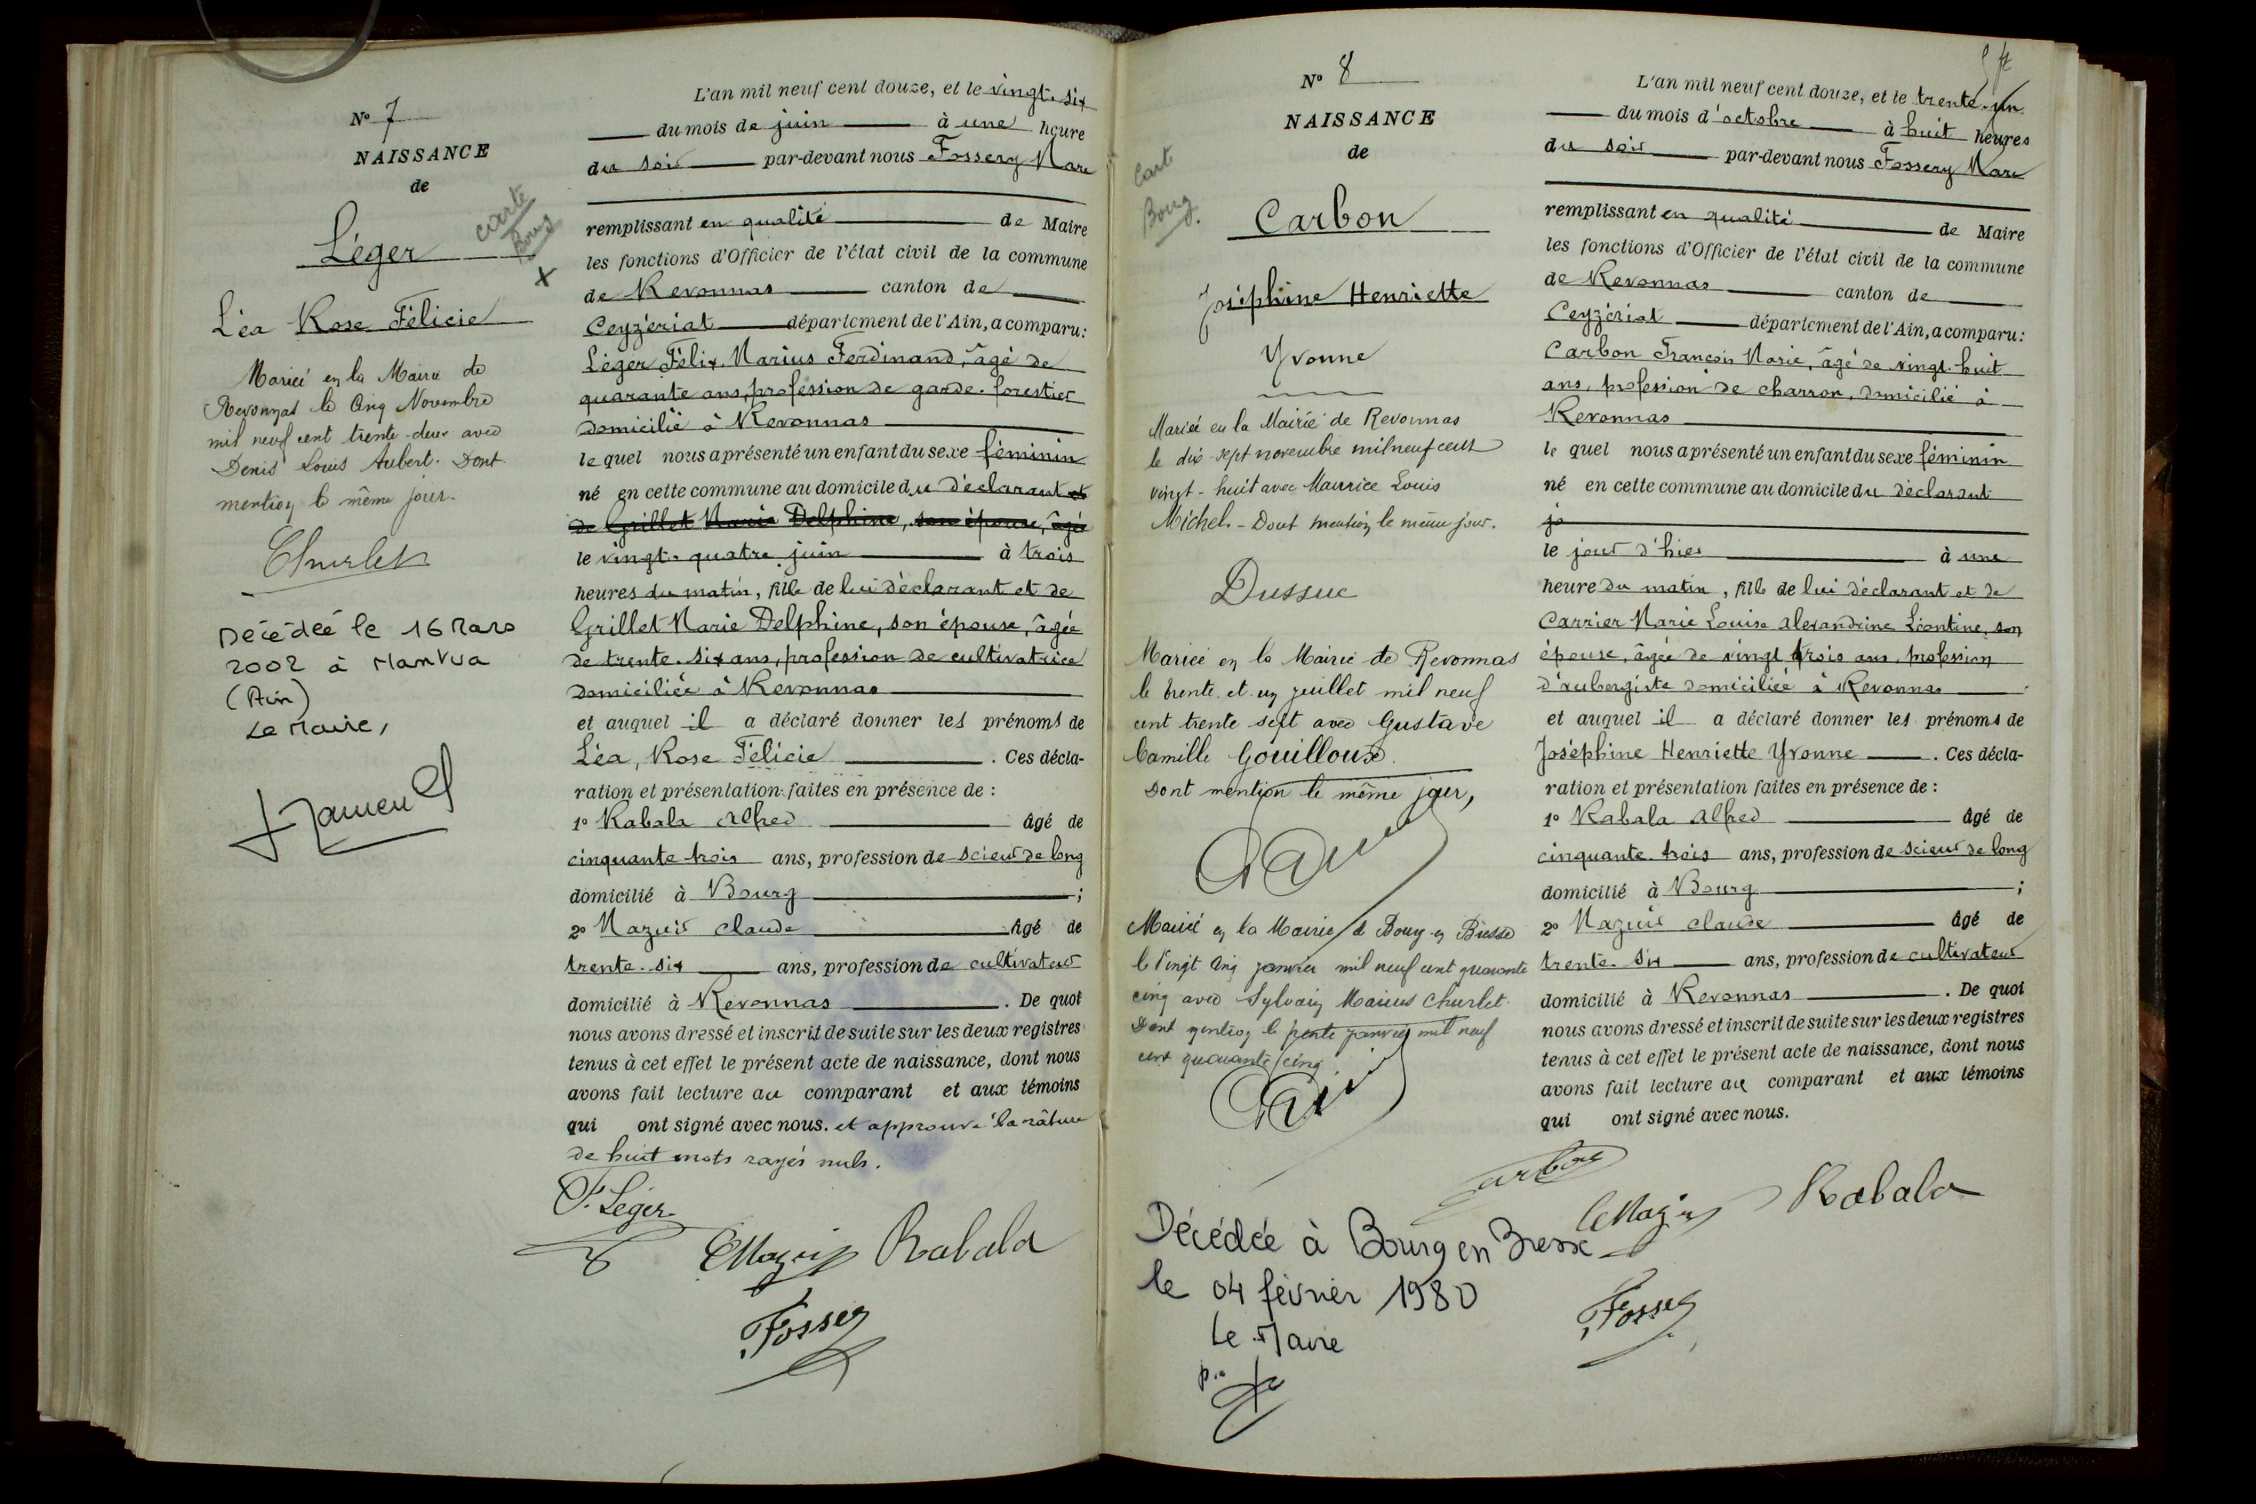 N° 7
NAISSANCE
de
Léger
Léa Rose Félicie
carte
Bourg
Mariée en la Mairie de
Revonnas le cinq Novembre
mil neuf cent trente-deux avec
Denis Louis Aubert. Dont
mention le même jour.
Churlet
Décédée le 16 Mars
2002 à Nantua
(Ain)
Le Maire,
L'an mil neuf cent douze, et le vingt-six
du mois de juin à une heure
du soir par-devant nous Fossery Marc
remplissant en qualité de Maire
les fonctions d'Officier de l'état civil de la commune
de Revonnas canton de
Ceyzériat département de l'Ain, a comparu:
Léger Félix, Marius Ferdinand, âgé de
quarante ans, profession de garde-forestier
domicilié à Revonnas
le quel nous a présenté un enfant du sexe féminin
né en cette commune au domicile du déclarant et
de Grillet Marie Delphine, son épouse, âgée
le vingt-quatre juin à trois
heures du matin, fille de lui déclarant et de
Grillet Marie Delphine, son épouse, âgée
de trente-six ans, profession de cultivatrice
domiciliée à Revonnas
et auquel il a déclaré donner les prénoms de
Léa, Rose Félicie. Ces décla-
ration et présentation faites en présence de :
1° Rabala Alfred âgé de
cinquante trois ans, profession de scieur de long
domicilié à Bourg ;
2° Mazuir claude âgé de
trente-six ans, profession de cultivateur
domicilié à Revonnas. De quoi
nous avons dressé et inscrit de suite sur les deux registres
tenus à cet effet le présent acte de naissance, dont nous
avons fait lecture au comparant et aux témoins
qui ont signé avec nous. et approuvé la râture
de huit mots rayés nuls.
F. Léger
C Mazuir Rabala
Fossery
N° 8
NAISSANCE
de
Carbon
Joséphine Henriette
Yvonne
Carte
Bourg.
Mariée en la Mairie de Revonnas
le dix-sept novembre mil neuf cent
vingt-huit avec Maurice Louis
Michel. - Dont mention le même jour.
Dussuc
Mariée en la Mairie de Revonnas
le trente et un juillet mil neuf
cent trente sept avec Gustave
Camille Gouilloux.
Dont mention le même jour,
Mariée en la Mairie de Bourg en Bresse
le vingt cinq janvier mil neuf cent quarante
cinq avec Sylvain Marius Churlet.
Dont mention le trente janvier mil neuf
cent quarante cinq.
Décédée à Bourg en Bresse
le 04 février 1980
Le Maire
L'an mil neuf cent douze, et le trente-un
du mois d'octobre à huit heures
du soir par-devant nous Fossery Marc
remplissant en qualité de Maire
les fonctions d'Officier de l'état civil de la commune
de Revonnas canton de
Ceyzériat département de l'Ain, a comparu:
Carbon François Marie, âgé de vingt-huit
ans, profession de charron, domicilié à
Revonnas
le quel nous a présenté un enfant du sexe féminin
né en cette commune au domicile du déclarant
jo
le jour d'hier à une
heure du matin, fille de lui déclarant et de
Carrier Marie Louise Alexandrine Léontine, son
épouse, âgée de vingt trois ans, profession
d'aubergiste domiciliée à Revonnas
et auquel il a déclaré donner les prénoms de
Joséphine Henriette Yvonne. Ces décla-
ration et présentation faites en présence de :
1° Rabala Alfred âgé de
cinquante-trois ans, profession de scieur de long
domicilié à Bourg ;
2° Mazuir claude âgé de
trente-six ans, profession de cultivateur
domicilié à Revonnas. De quoi
nous avons dressé et inscrit de suite sur les deux registres
tenus à cet effet le présent acte de naissance, dont nous
avons fait lecture au comparant et aux témoins
qui ont signé avec nous.
Carbon
C Mazuir Rabala
Fossery